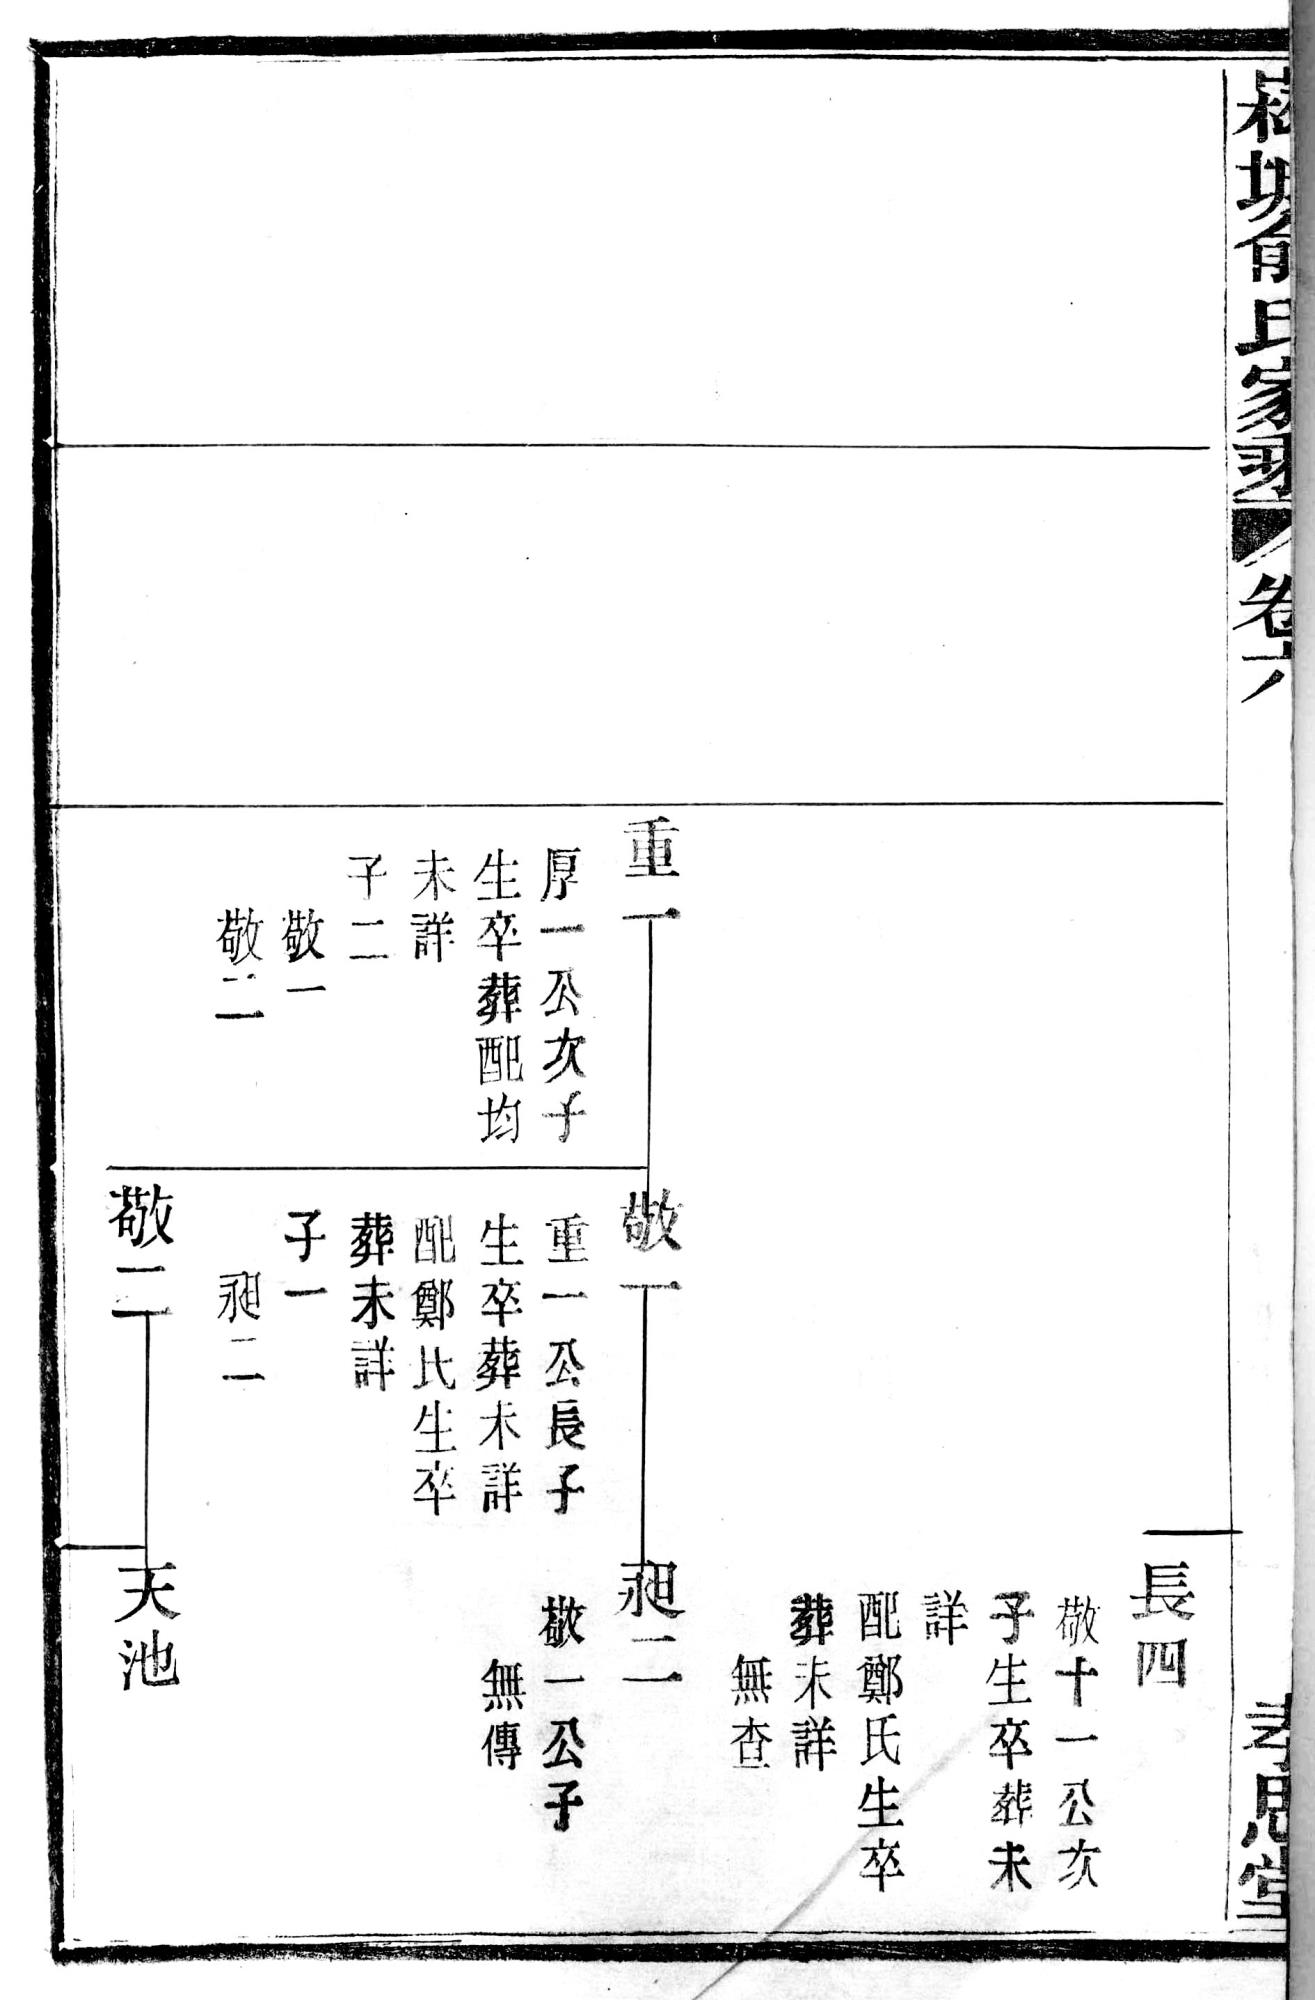 俞氏家乘 卷六
孝思堂
長四
敬十一公次
子生卒葬未
詳
配鄭氏生卒
葬未詳
無查
重一
厚一公次子
生卒葬配均
未詳
子二
敬一
敬二
敬一
重一公長子
生卒葬未詳
配鄭氏生卒
葬未詳
子一
昶二
昶二
敬一公子
無傳
敬二
天池